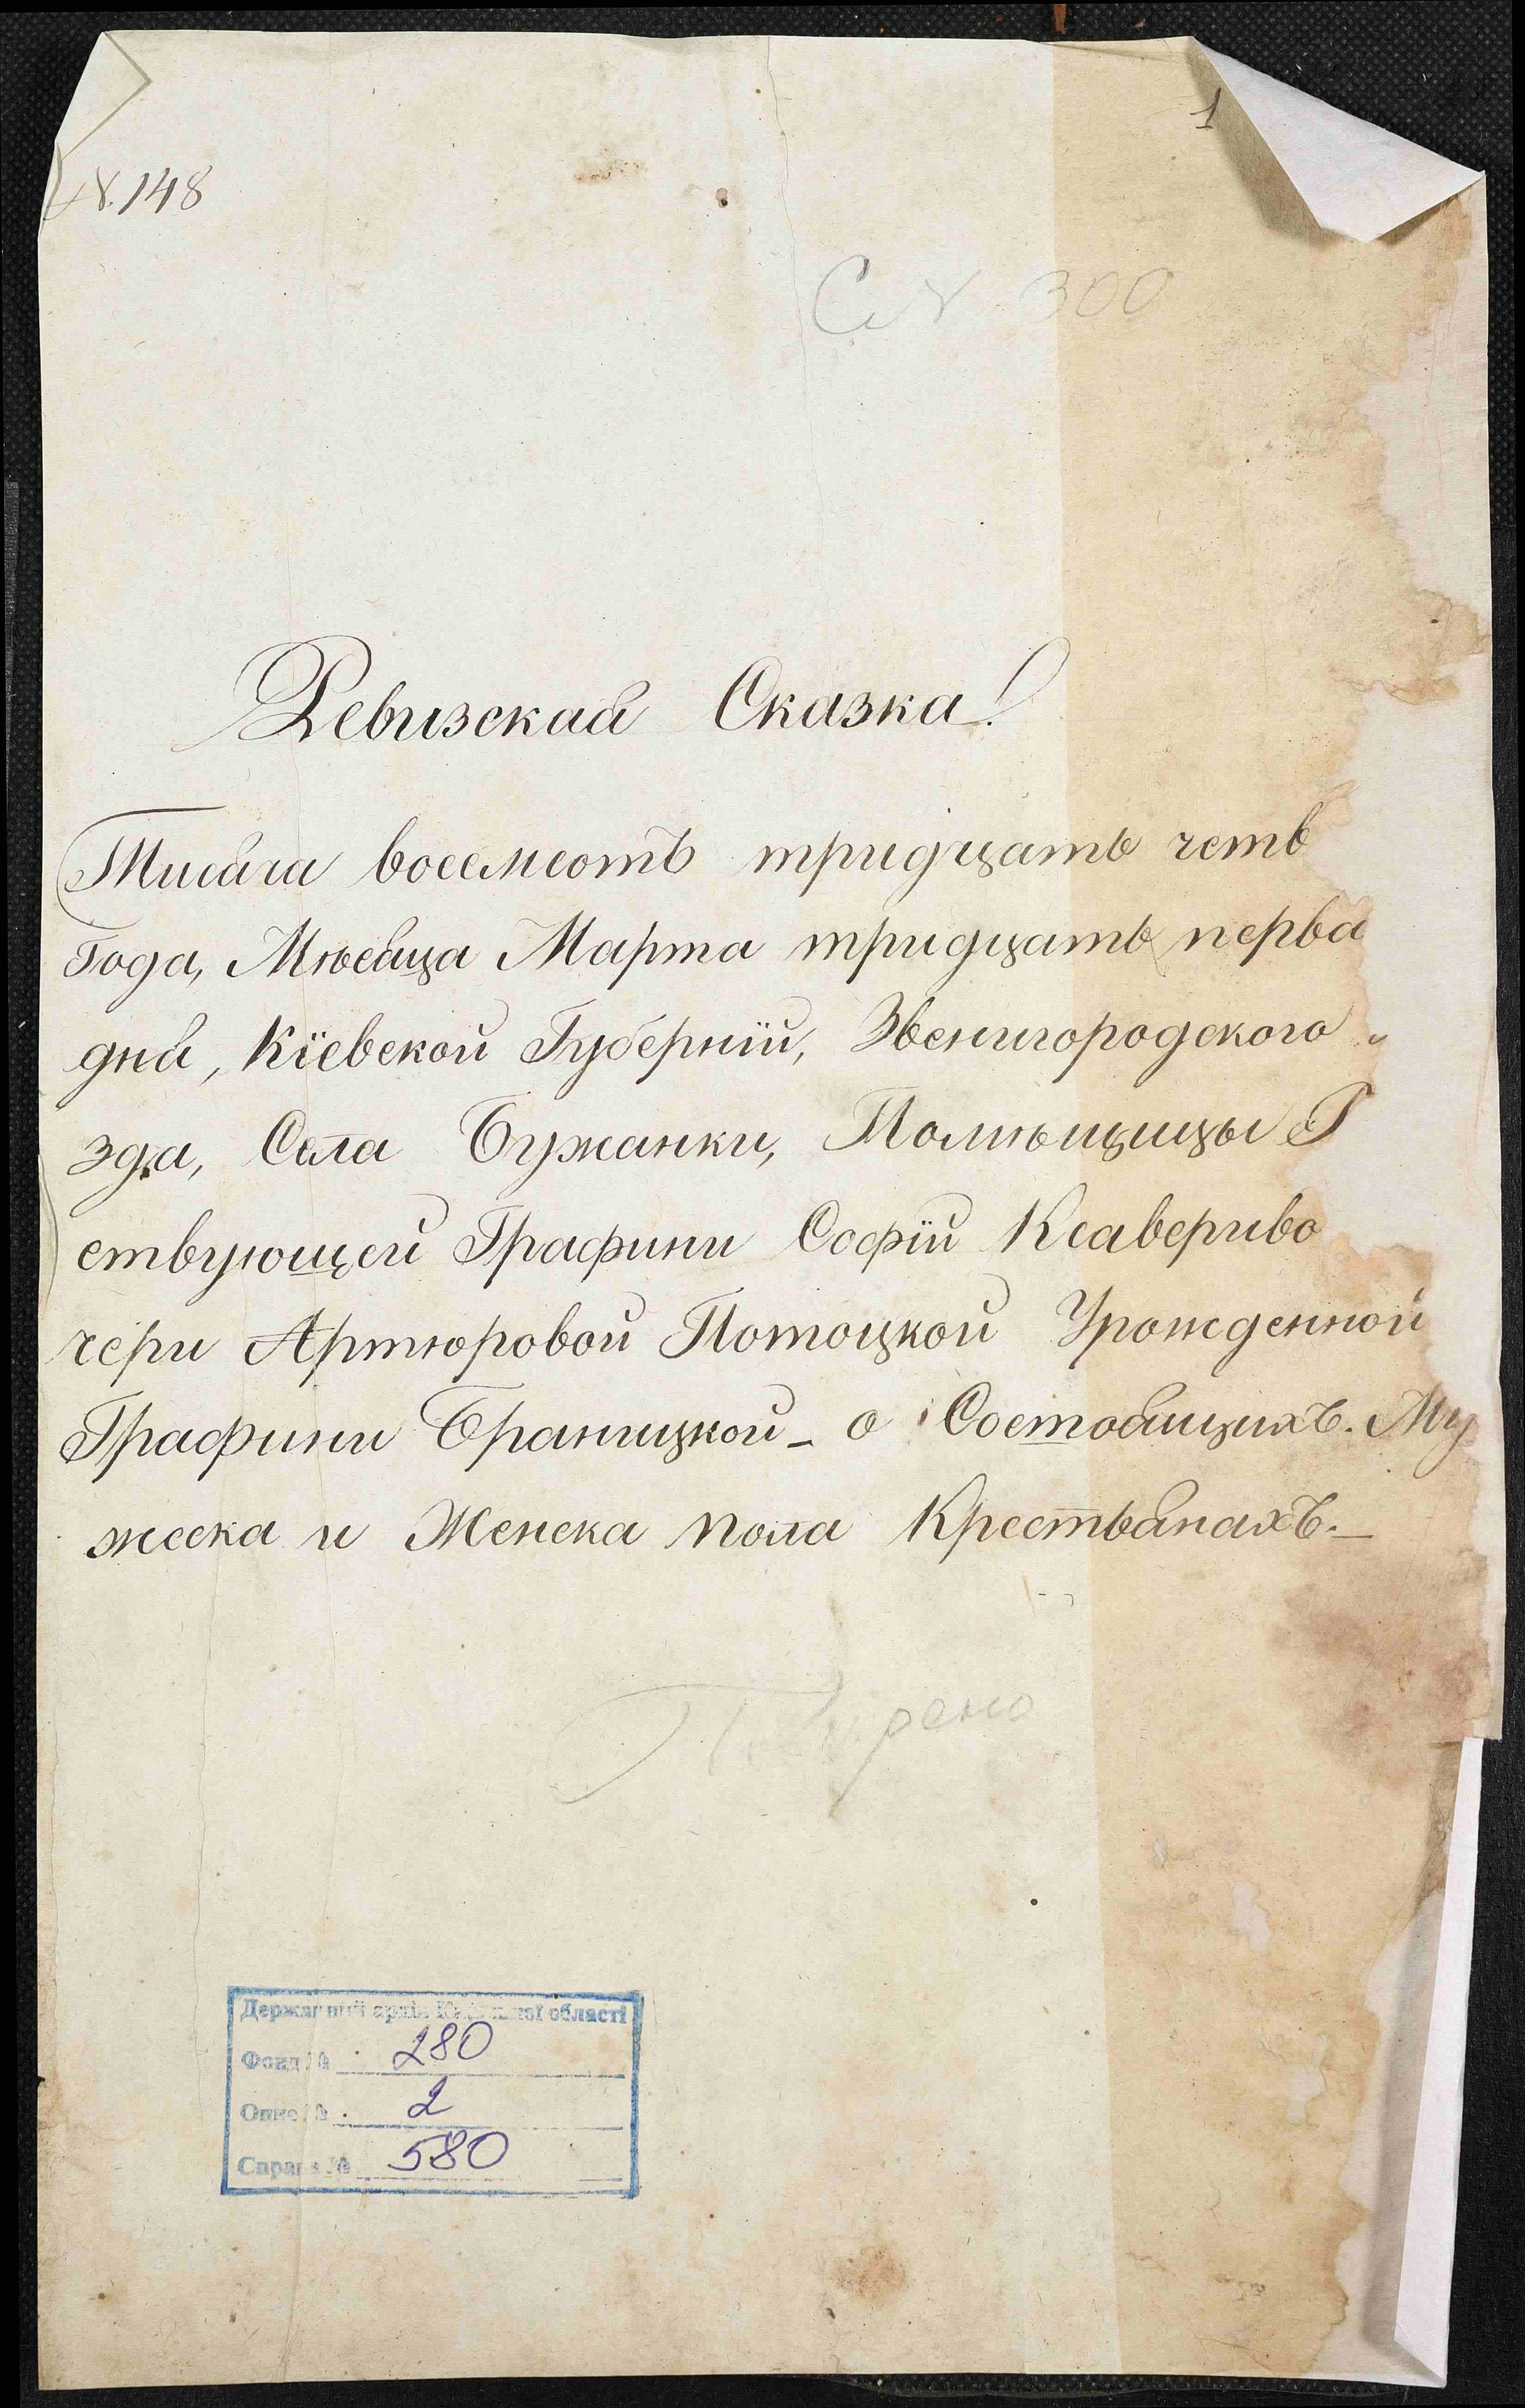 1
№ 148
№ 300
Ревизская Сказка!
Тисяча восемсотъ тридцать четв
Года, Мѣсяца Марта тридцать перва
дня, Кіевской Губерніи, Звенигородского
зда, Села Бужанки, Помѣщицы Г
ствующей Графини Софіи Ксавериво
чери Артюровой Потоцкой Урожденной
Графини Браницкой - о Состоящихъ. Му
жеска и Женска пола Крестьянахъ.
Державний архів Київської області
Фонд № 280
Опис № 2
Справа № 580